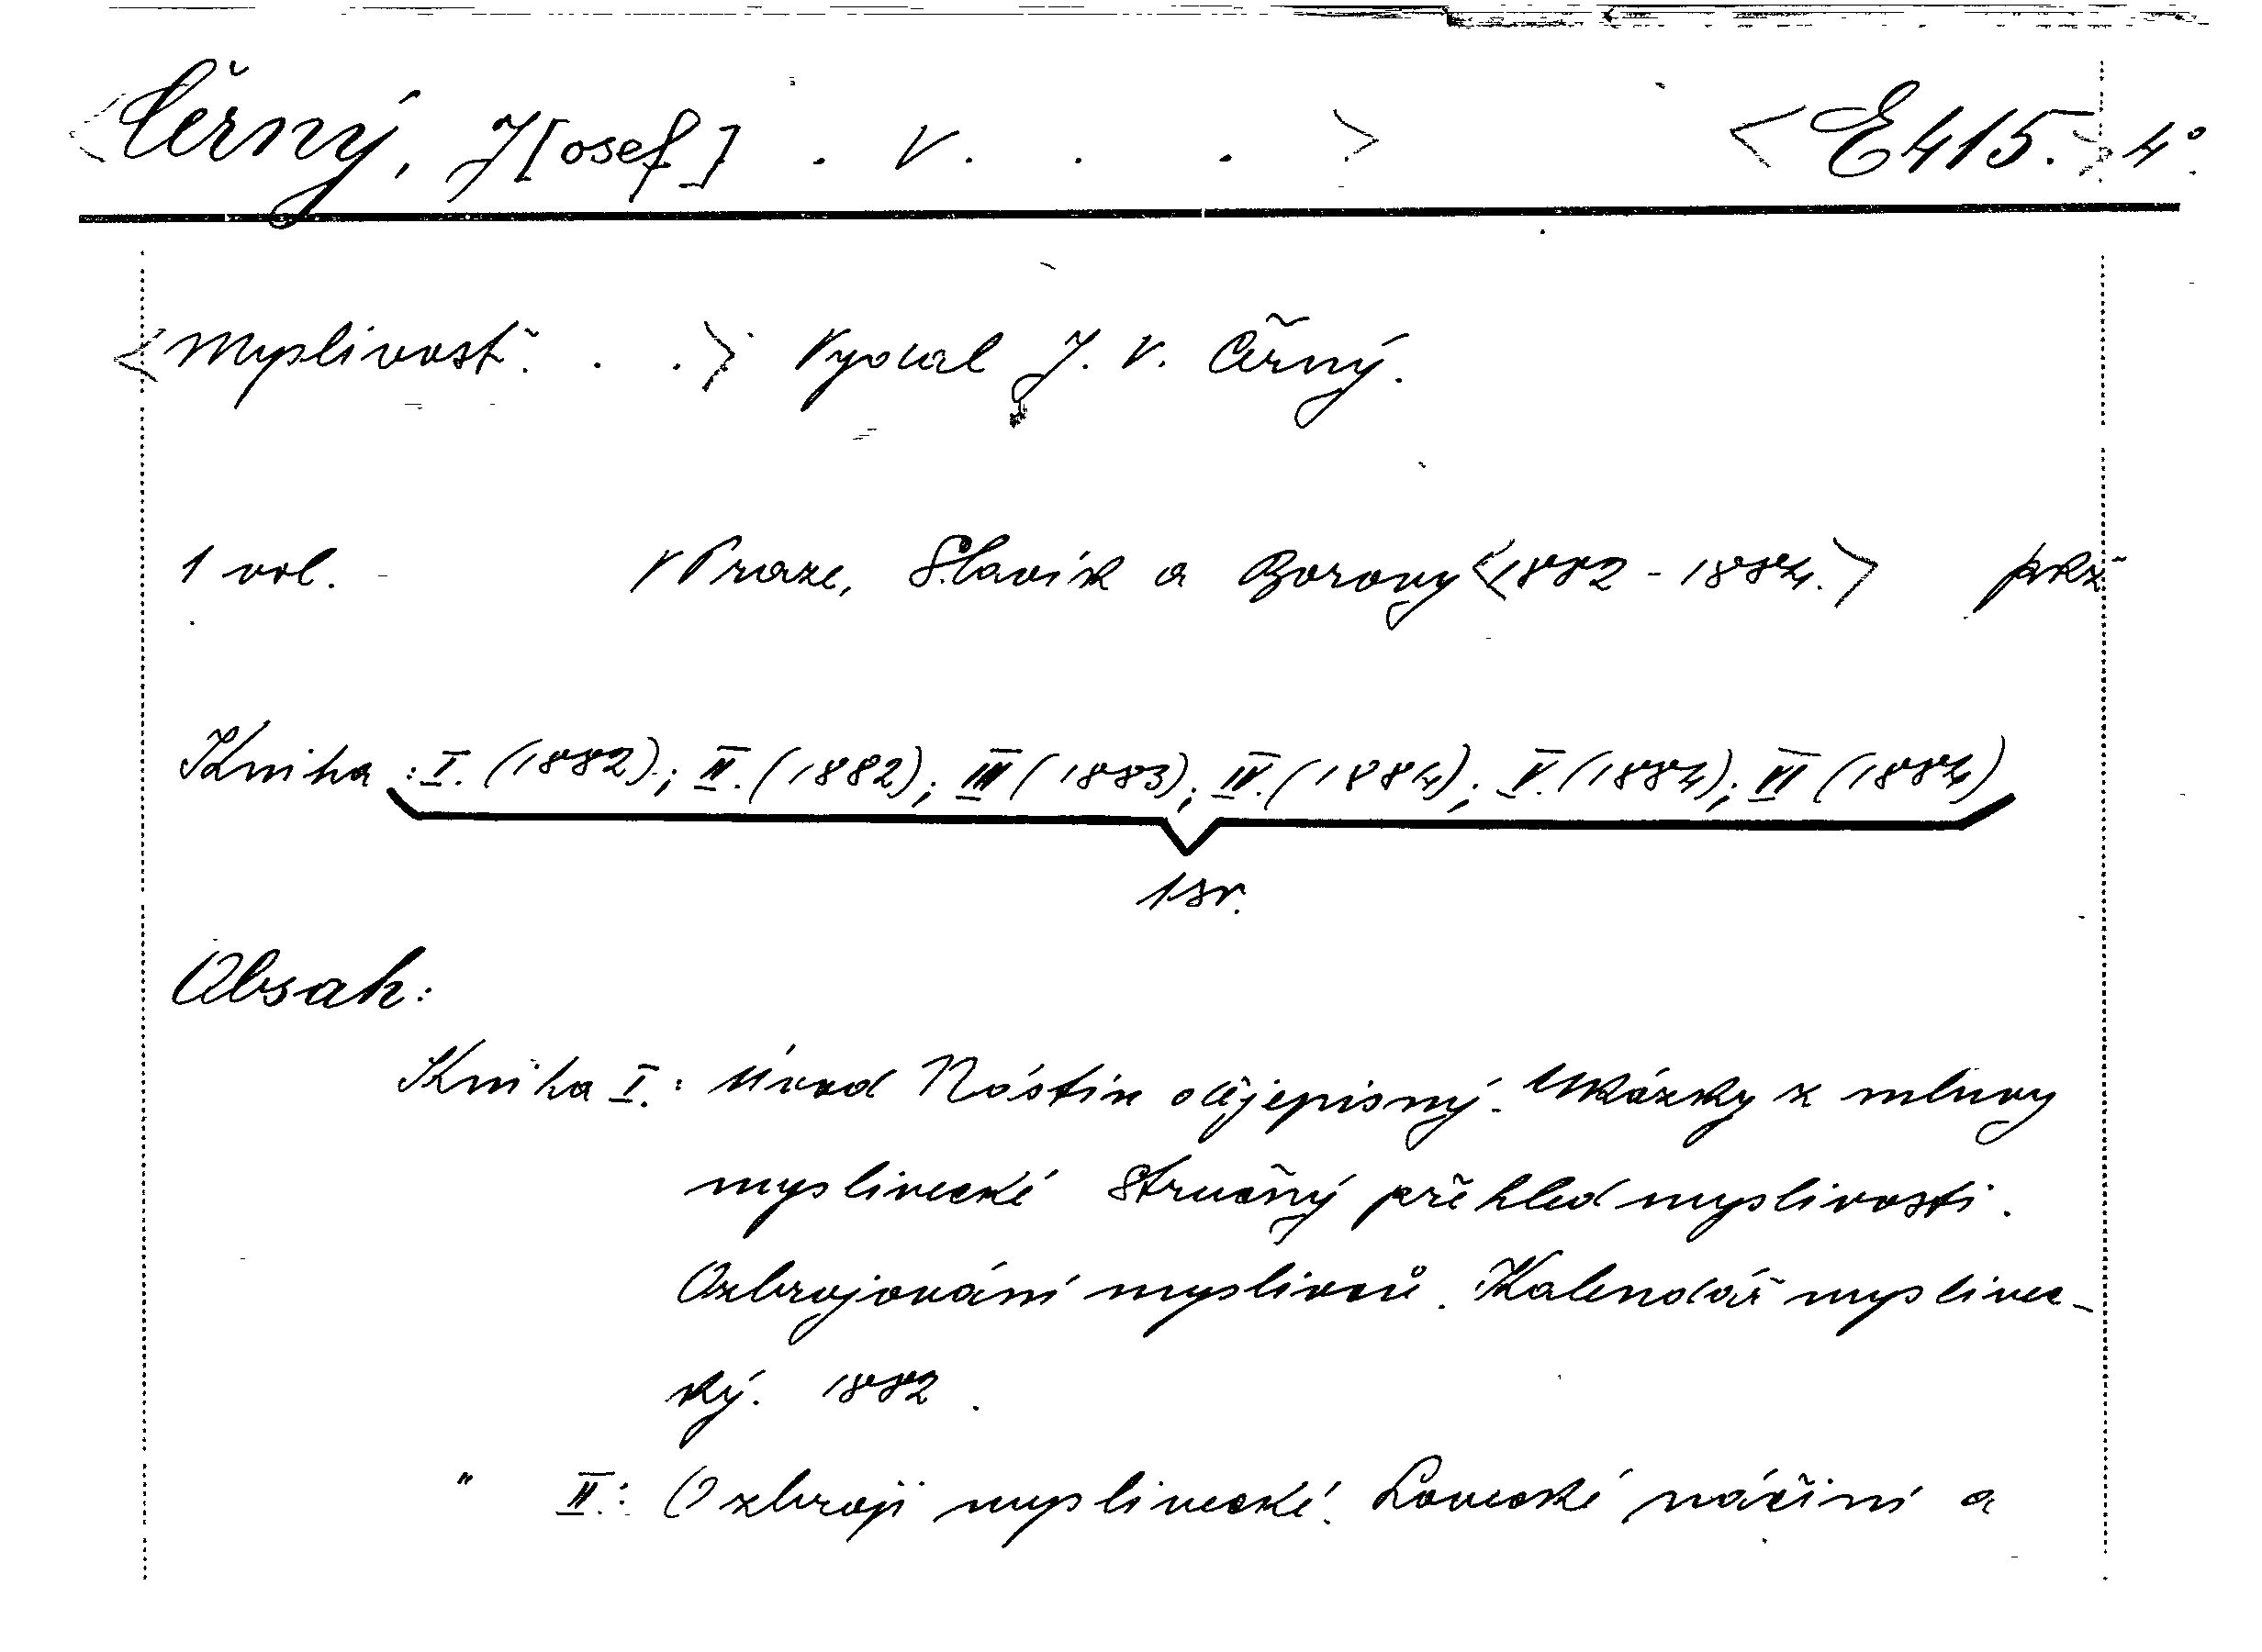 <Černý, J[osef] . V. . . > <E415.> 4°.
<Myslivosť. . .> Vydal J. V. Černý.
1 vol. V Praze, Slavík a Borový <1882-1884.> pkž
Kniha: I. (1882); II. (1882); III (1883); IV. (1884); V. (1884); VI (1884)
1 sv.
Obsah:
Kniha I.: Úvod Nástin dějepisný. Ukázky z mluvy
myslivecké Stručný přehled myslivosti.
Ozbrojování myslivců. Kalendář myslivec-
ký. 1882.
" II.: O zbroji myslivecké. Lovecké náčiní a